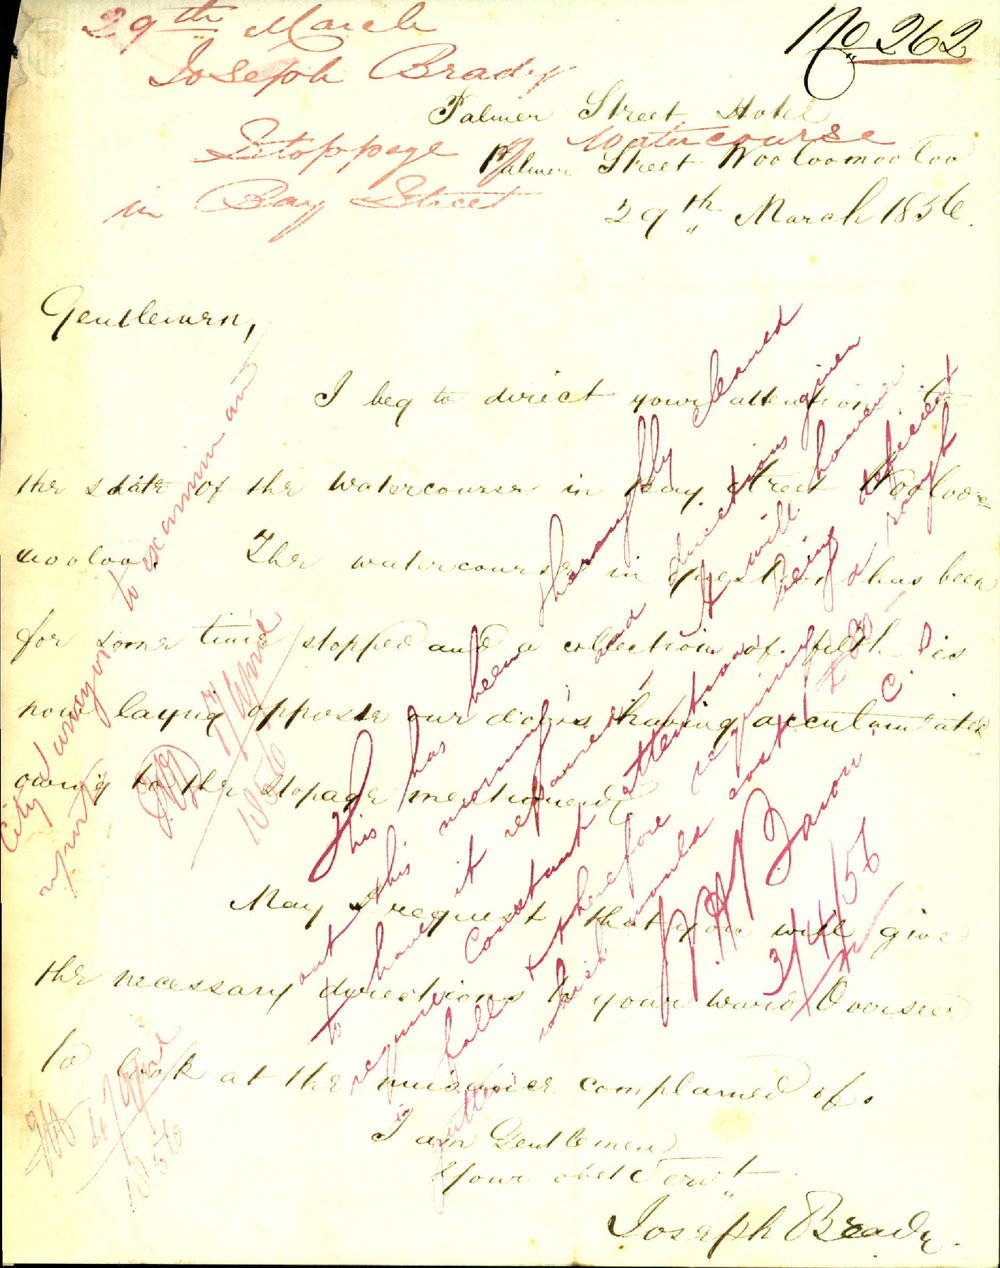 29th March
Joseph Brady
Stoppage of Watercourse
in Bay Street
No. 262
Palmer Street Hotel
Palmer Street Wooloomooloo
29th March 1856.
Gentlemen,
I beg to direct your attention to
the state of the watercourse in Bay Street Wooloo=
mooloo. The watercourse in question has been
for some time stopped and a collection of filth is
now laying opposite our doors having accumulated
owing to the stopage mentioned
May I request that you will give
the necessary directions to your ward Overseer
to look at the nuisance complained of.
I am Gentlemen
Your obedt Servt
Joseph Brady.
City Surveyor to examine and
report
7/April
1856
This has been thoroughly cleaned
out this morning and directions given
to have it repaired. It will however
require constant attention being deficient
in fall & therefore requiring a rough
gutter which would cost £25-
C. S.
3/4/56
4/April
1856